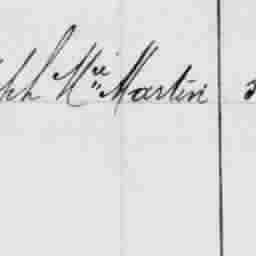 ph McMartin